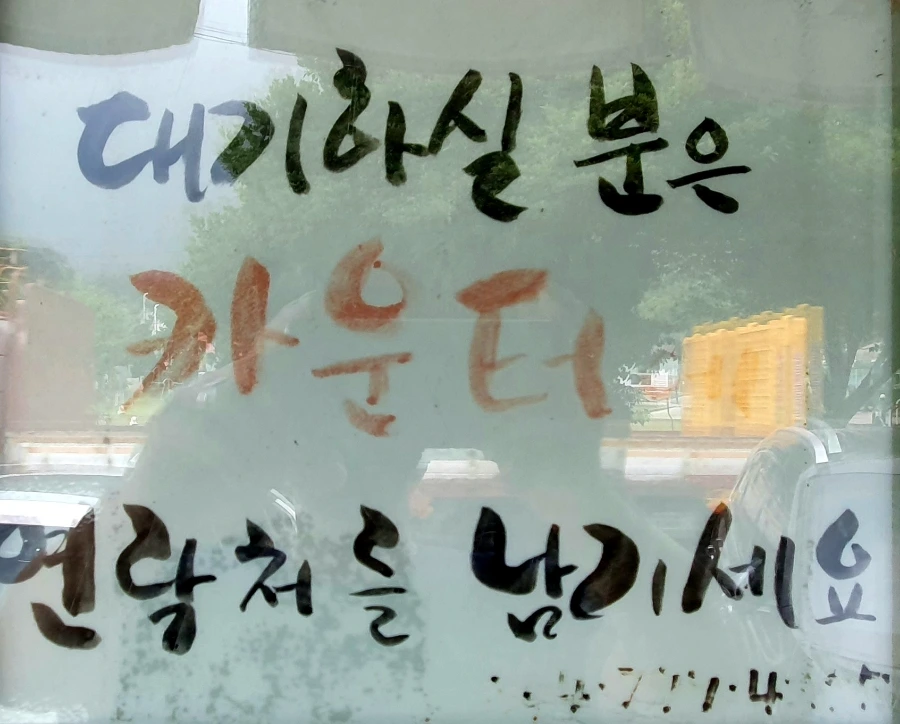 대기하실 분은
카운터
연락처를 남기세요